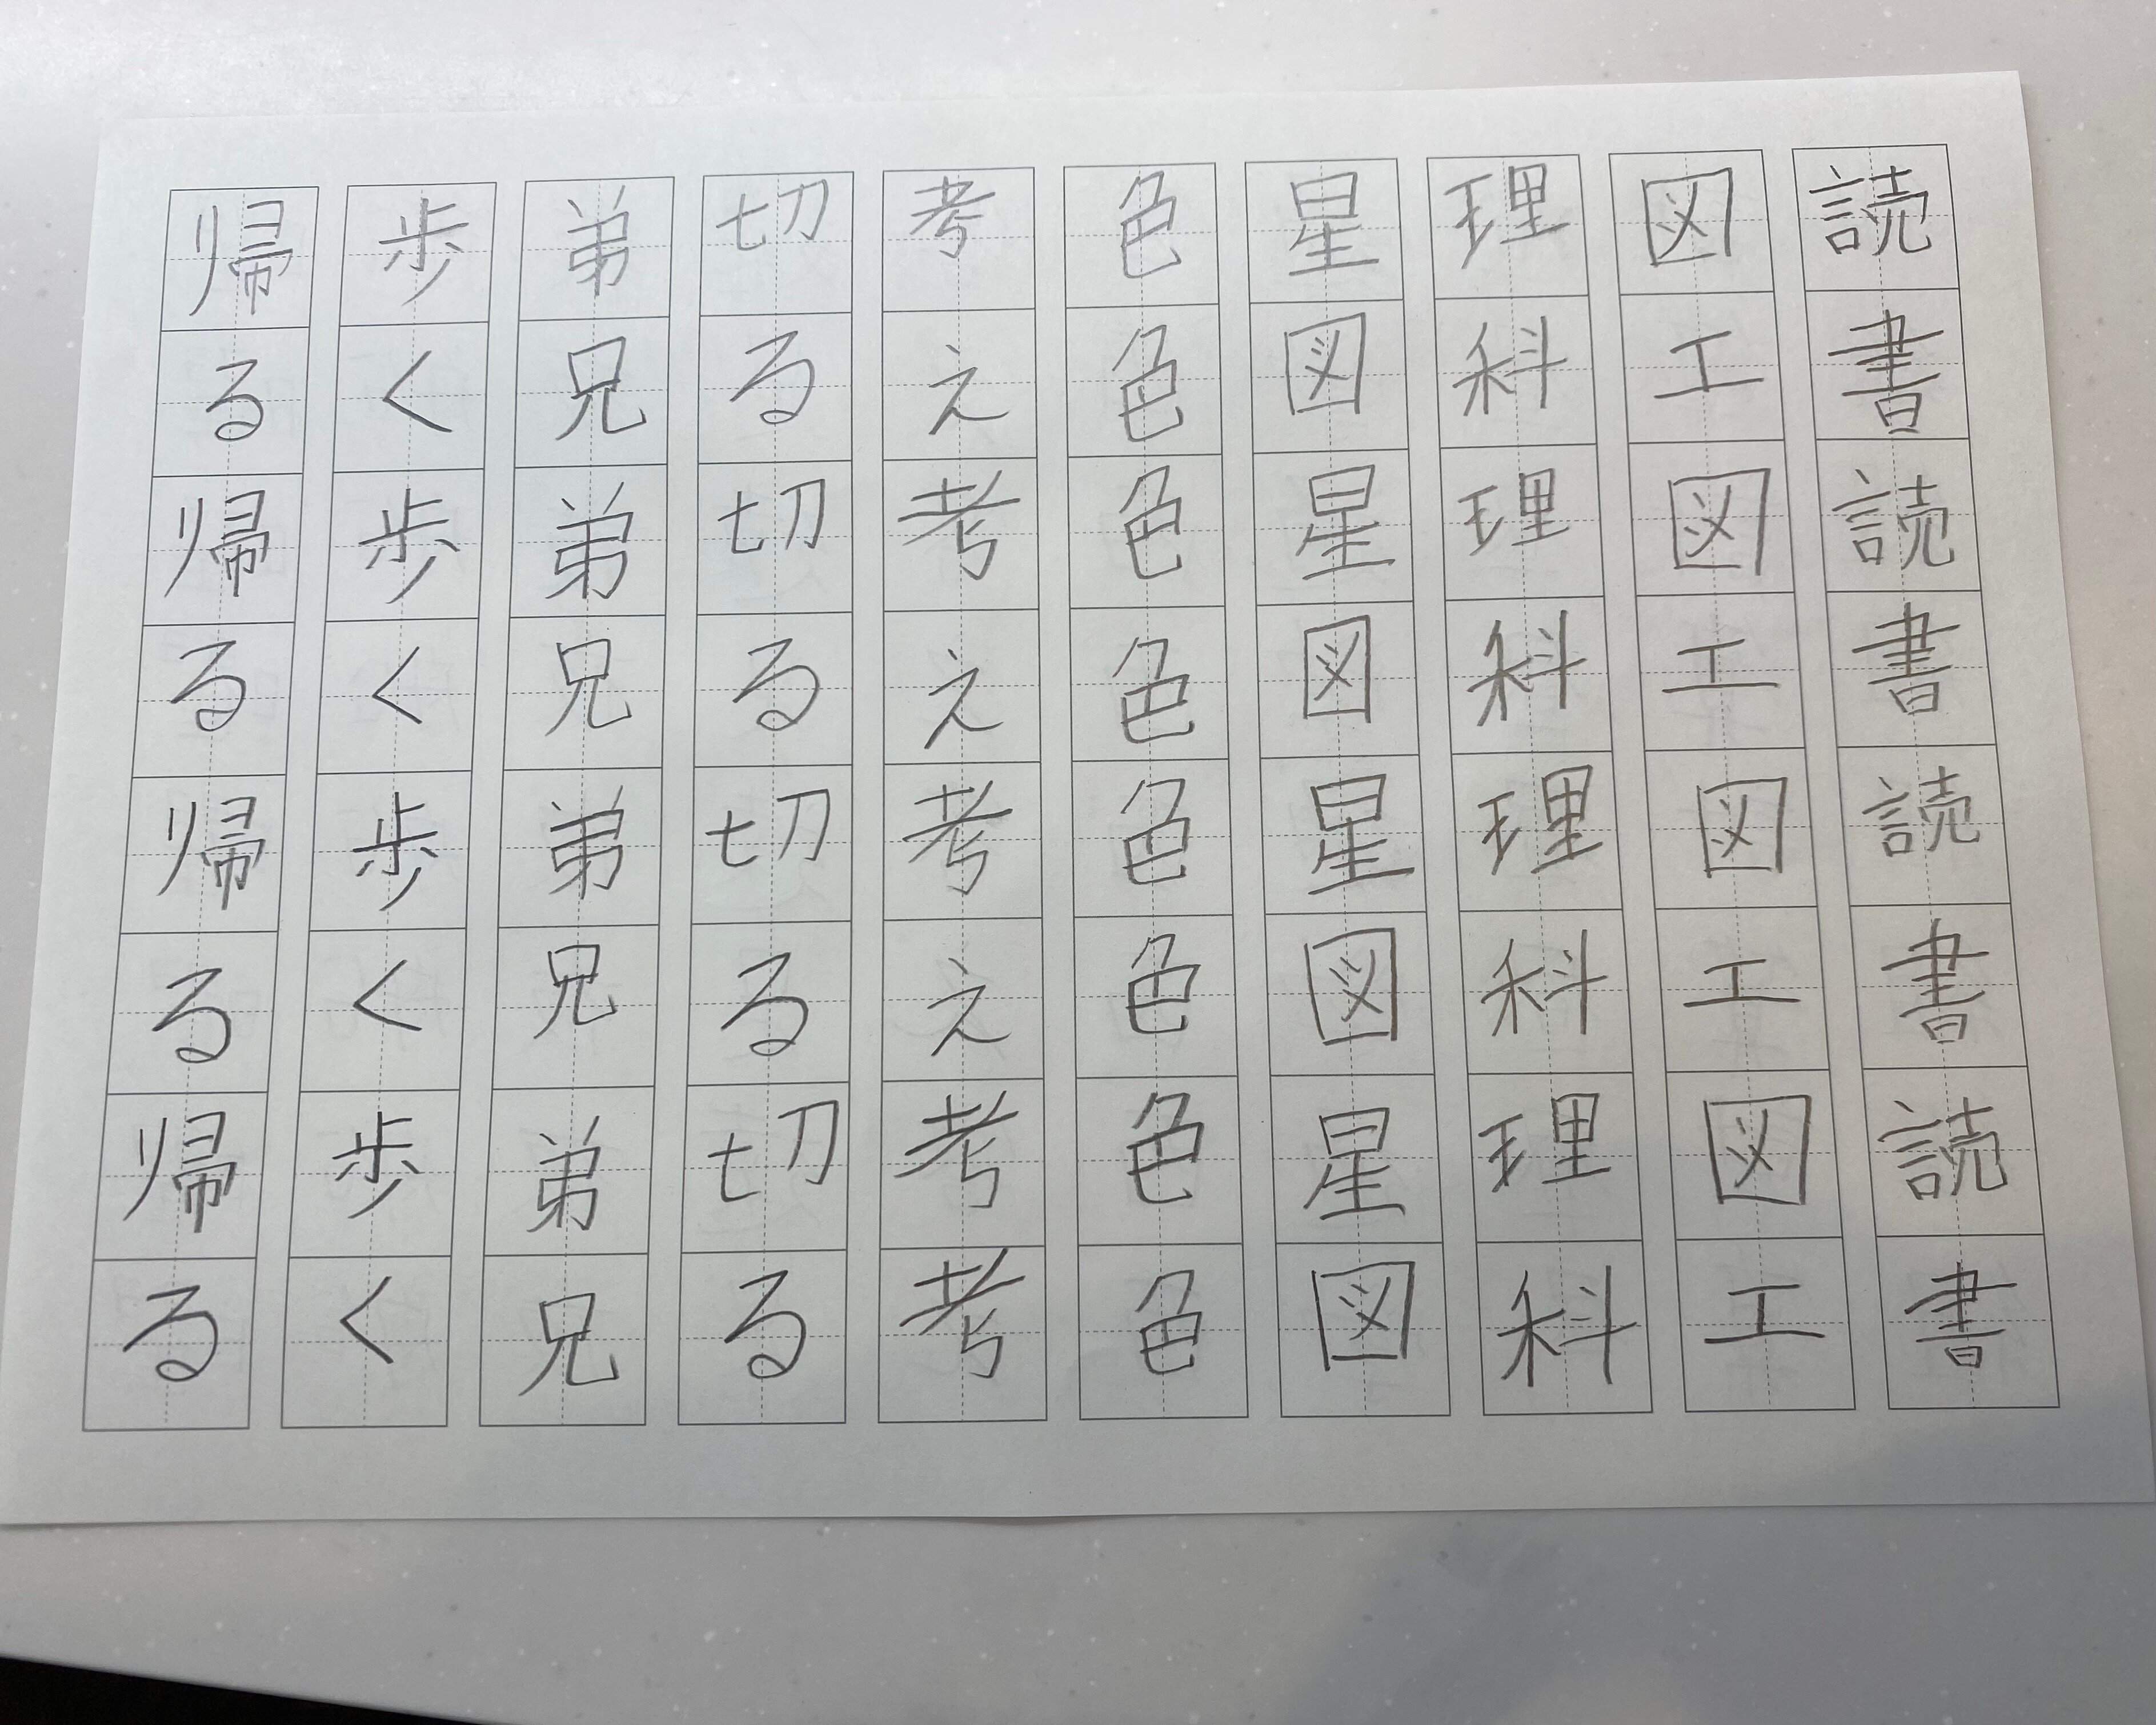 読書読書読書読書
図工図工図工図工
理科理科理科理科
星図星図星図星図
色色色色色色色色
考え考え考え考考
切る切る切る切る
弟兄弟兄弟兄弟兄
歩く歩く歩く歩く
帰る帰る帰る帰る